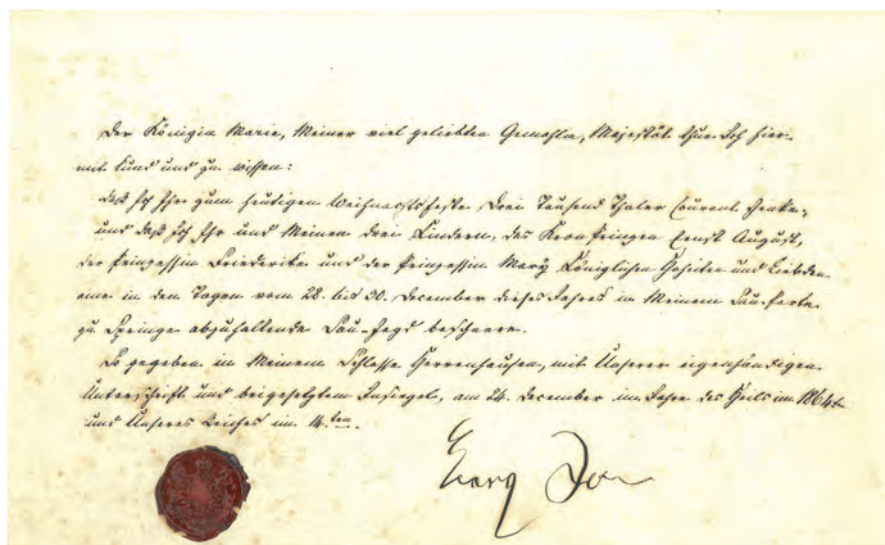 Der Königin Marie, Meiner viel geliebten Gemahlin, Majestät thue Ich hier-
mit kund und zu wissen:
daß Ich Ihr zum heutigen Weihnachtsfeste Drei Tausend Thaler Courant schenke,
und daß Ich Ihr und Meinen drei Kindern, des Kronprinzen Ernst August,
der Prinzessin Friederike und der Prinzessin Mary Königlichen Hoheiten und Liebden
eine in den Tagen vom 28. bis 30. December dieses Jahres in Meinem Sauparke
zu Springe abzuhaltende Sau-Jagd bescheere.
So gegeben in Meinem Schlosse Herrenhausen, mit Unserer eigenhändigen
Unterschrift und beigesetztem Insiegel, am 24. December im Jahre des Heils im 1864ten
und Unseres Reiches im 14.ten.
Georg Rex